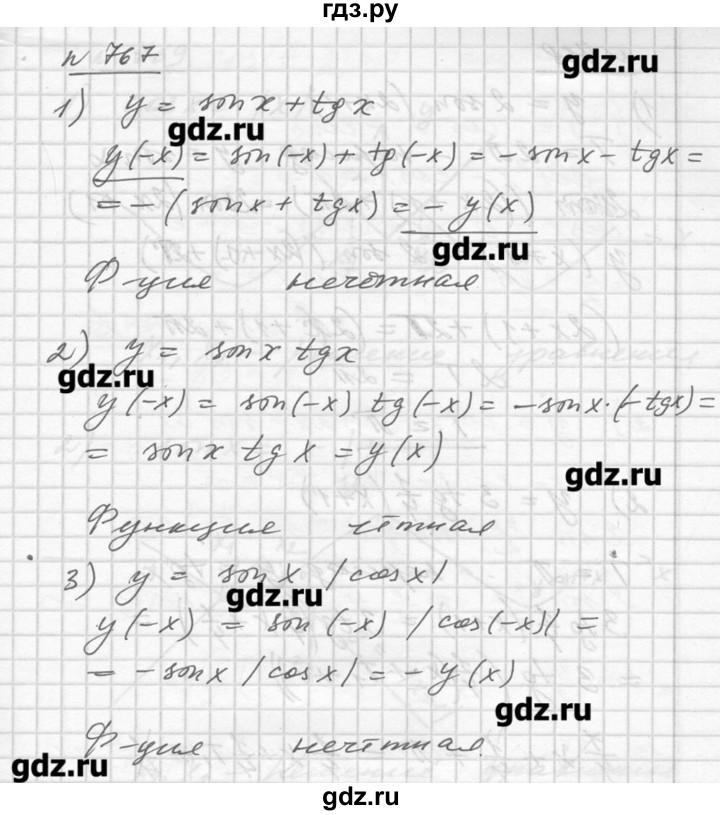 гдз.ру
n 767
gdz.ru
1) y = sin x + tg x
gdz.ru
y(-x) = sin(-x) + tg(-x) = - sin x - tg x =
= - (sin x + tg x) = - y(x)
gdz.ru
Ф-ция нечётная
2) y = sin x tg x
gdz.ru
y(-x) = sin(-x) tg(-x) = - sin x · (- tg x) =
= sin x tg x = y(x)
gdz.ru
Функция чётная
3) y = sin x |cos x|
gdz.ru
y(-x) = sin(-x) |cos(-x)| =
= - sin x |cos x| = - y(x)
gdz.ru
Ф-ция нечётная
gdz.ru
gdz.ru